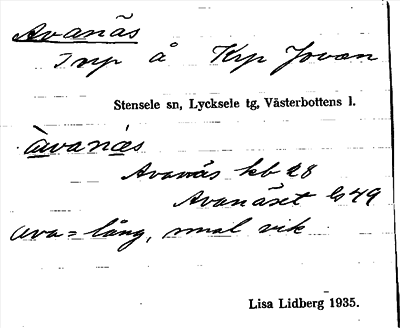 Avanäs
Tnp å Krp Jovan
Stensele sn, Lycksele tg, Västerbottens l.
àvanɛs
Avanäs kb 28
Avanäset Gs 49
ava = lång, smal vik
Lisa Lidberg 1935.